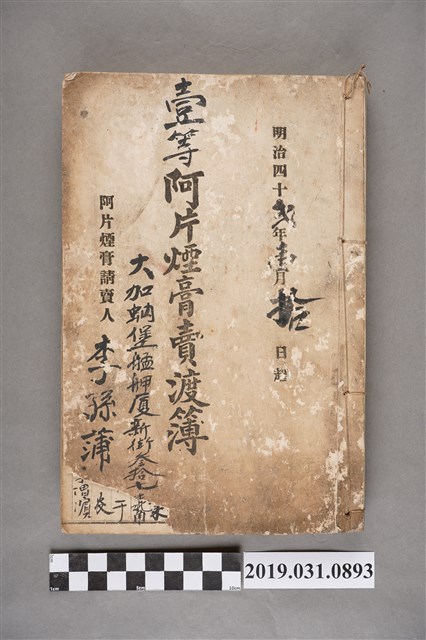 明治四十貳年壹月拾日起
壹等阿片煙膏賣渡簿
大加蚋堡艋舺厦新街叁拾七
阿片煙膏請賣人 李孫蒲
2019.031.0893